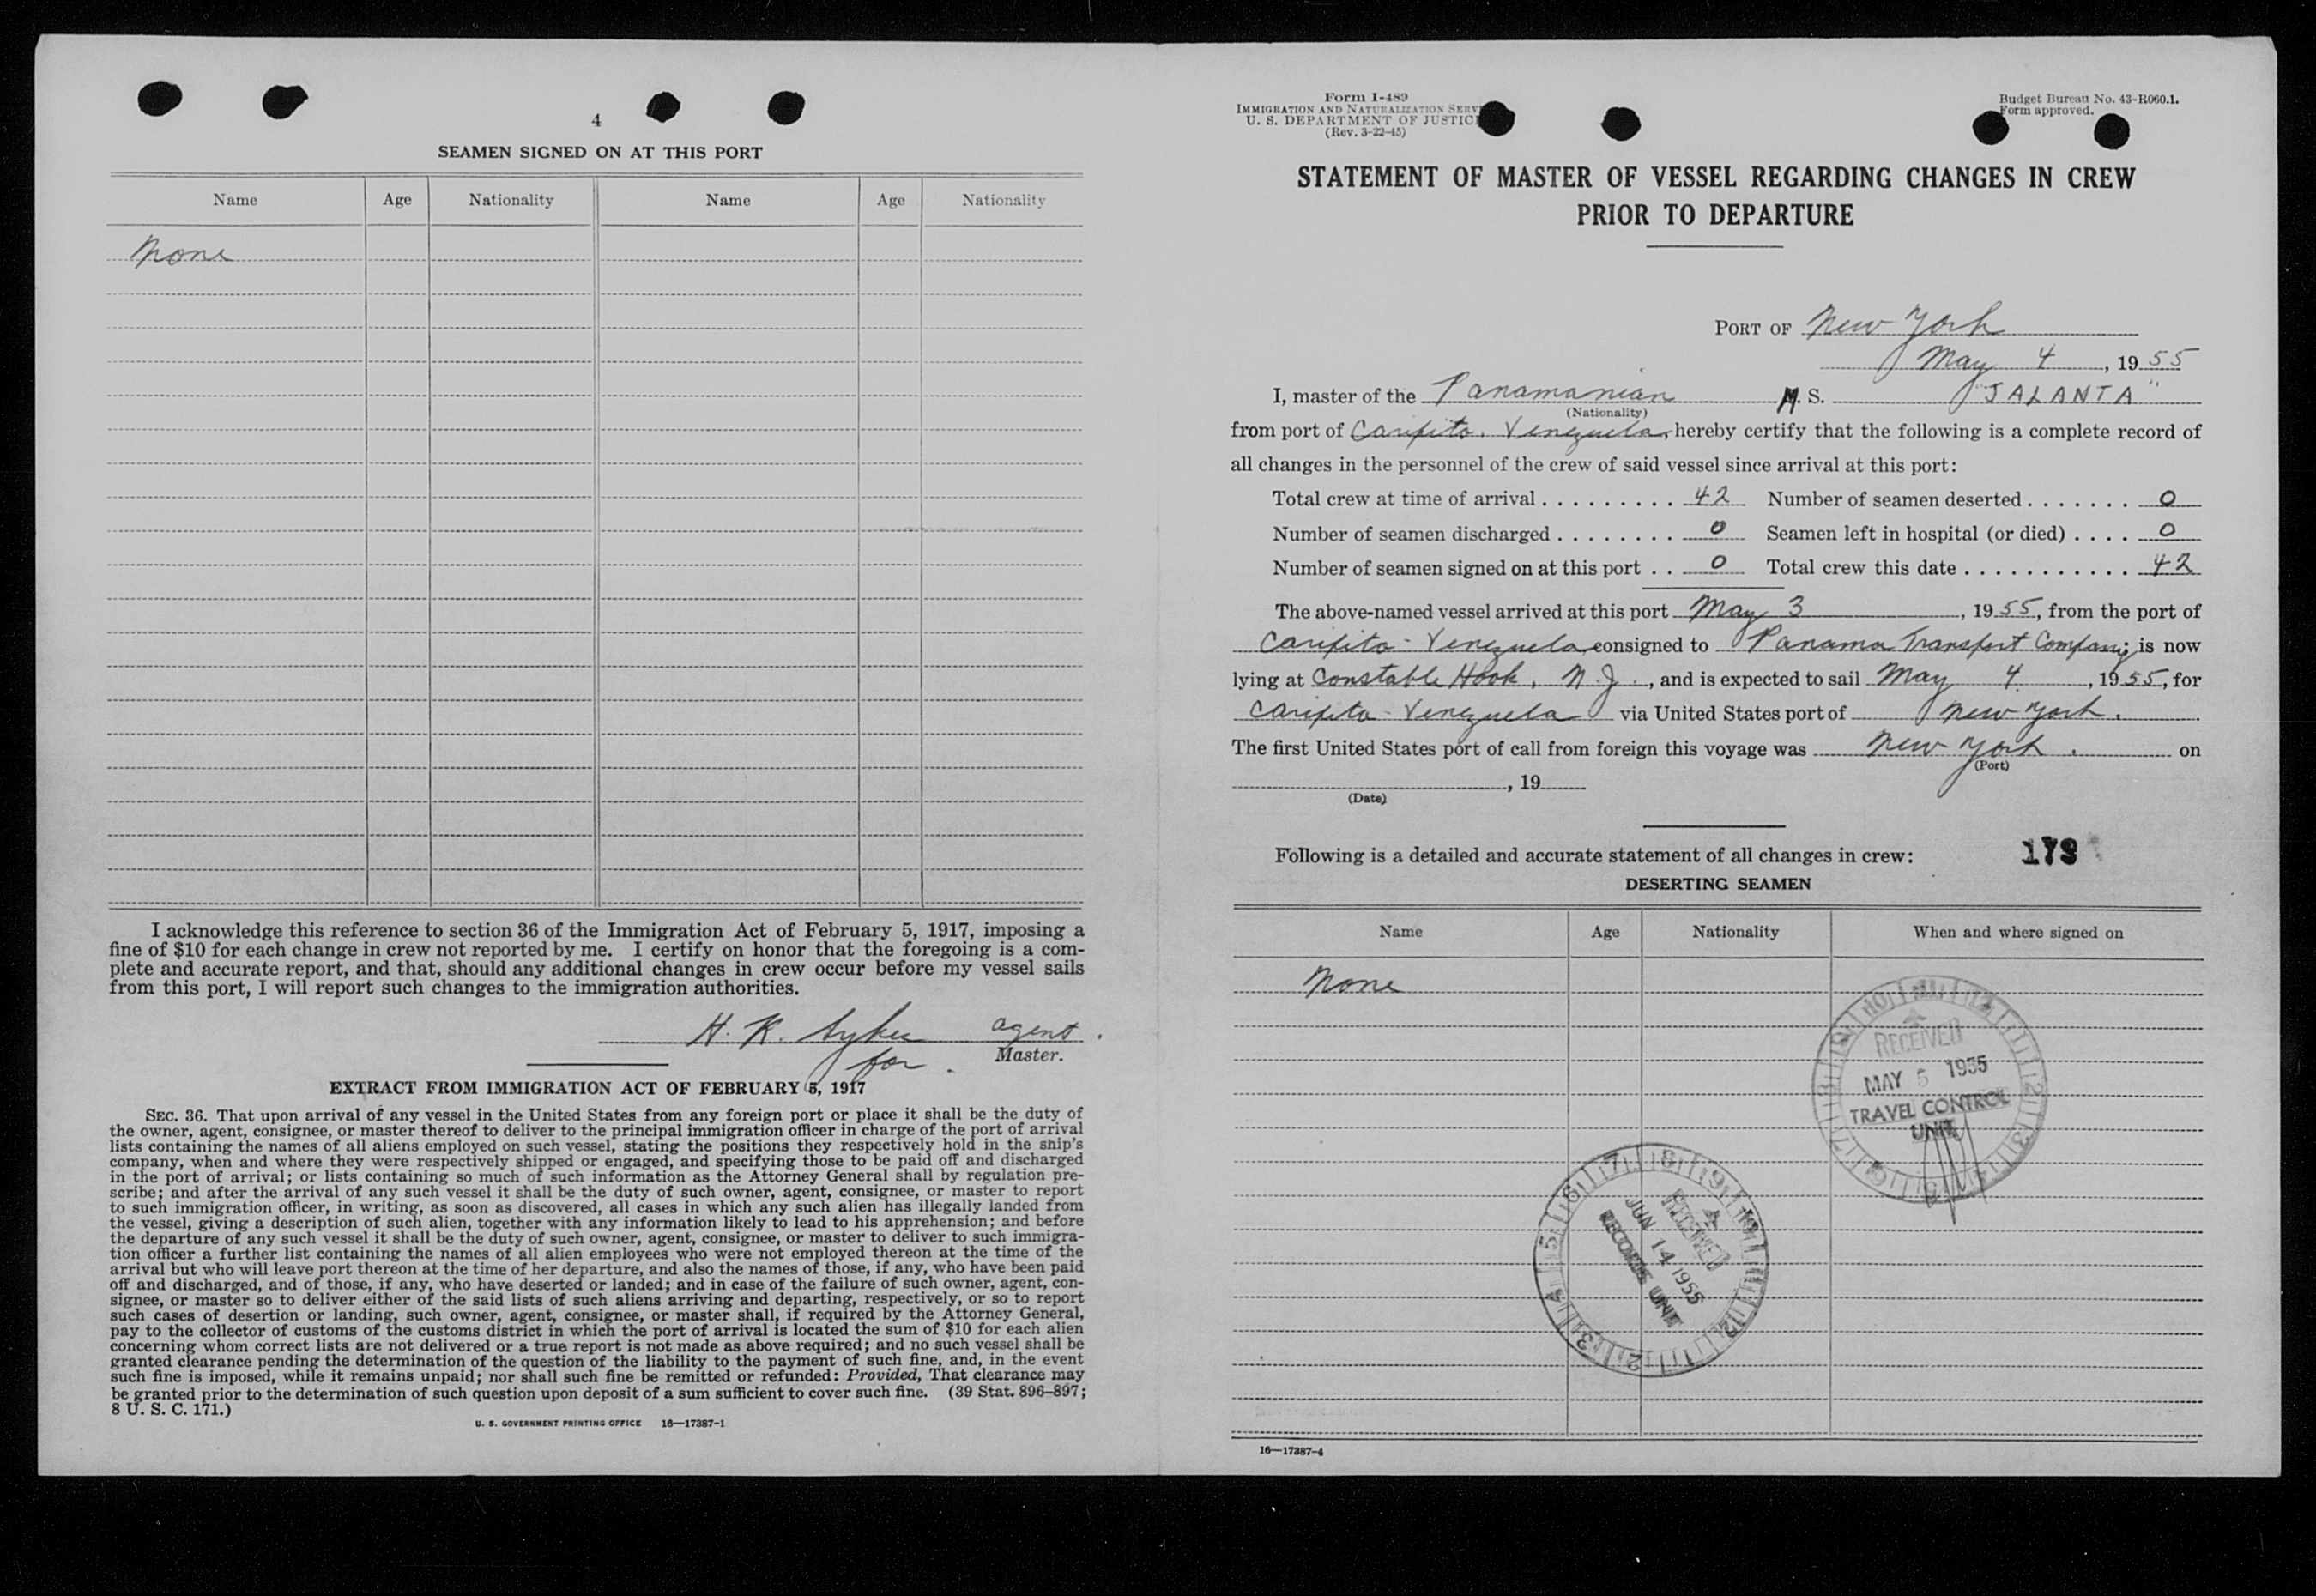 4
SEAMEN SIGNED ON AT THIS PORT
Name Age Nationality Name Age Nationality
None
I acknowledge this reference to section 36 of the Immigration Act of February 5, 1917, imposing a
fine of $10 for each change in crew not reported by me. I certify on honor that the foregoing is a com-
plete and accurate report, and that, should any additional changes in crew occur before my vessel sails
from this port, I will report such changes to the immigration authorities.
H. K. agent
for Master.
EXTRACT FROM IMMIGRATION ACT OF FEBRUARY 5, 1917
SEC. 36. That upon arrival of any vessel in the United States from any foreign port or place it shall be the duty of
the owner, agent, consignee, or master thereof to deliver to the principal immigration officer in charge of the port of arrival
lists containing the names of all aliens employed on such vessel, stating the positions they respectively hold in the ship's
company, when and where they were respectively shipped or engaged, and specifying those to be paid off and discharged
in the port of arrival; or lists containing so much of such information as the Attorney General shall by regulation pre-
scribe; and after the arrival of any such vessel it shall be the duty of such owner, agent, consignee, or master to report
to such immigration officer, in writing, as soon as discovered, all cases in which any such alien has illegally landed from
the vessel, giving a description of such alien, together with any information likely to lead to his apprehension; and before
the departure of any such vessel it shall be the duty of such owner, agent, consignee, or master to deliver to such immigra-
tion officer a further list containing the names of all alien employees who were not employed thereon at the time of the
arrival but who will leave port thereon at the time of her departure, and also the names of those, if any, who have been paid
off and discharged, and of those, if any, who have deserted or landed; and in case of the failure of such owner, agent, con-
signee, or master so to deliver either of the said lists of such aliens arriving and departing, respectively, or so to report
such cases of desertion or landing, such owner, agent, consignee, or master shall, if required by the Attorney General,
pay to the collector of customs of the customs district in which the port of arrival is located the sum of $10 for each alien
concerning whom correct lists are not delivered or a true report is not made as above required; and no such vessel shall be
granted clearance pending the determination of the question of the liability to the payment of such fine, and, in the event
such fine is imposed, while it remains unpaid; nor shall such fine be remitted or refunded: Provided, That clearance may
be granted prior to the determination of such question upon deposit of a sum sufficient to cover such fine. (39 Stat. 896–897;
8 U. S. C. 171.)
U. S. GOVERNMENT PRINTING OFFICE 16—17387-1
Form I-489
IMMIGRATION AND NATURALIZATION SERV
U. S. DEPARTMENT OF JUSTIC
(Rev. 3-22-45)
Budget Bureau No. 43-R060.1.
Form approved.
STATEMENT OF MASTER OF VESSEL REGARDING CHANGES IN CREW
PRIOR TO DEPARTURE
PORT OF New York
May 4, 1955
I, master of the Panamanian M. S. "JALANTA"
(Nationality)
from port of Caripito, Venezuela, hereby certify that the following is a complete record of
all changes in the personnel of the crew of said vessel since arrival at this port:
Total crew at time of arrival 42 Number of seamen deserted 0
Number of seamen discharged 0 Seamen left in hospital (or died) 0
Number of seamen signed on at this port 0 Total crew this date 42
The above-named vessel arrived at this port May 3, 1955, from the port of
Caripito - Venezuela consigned to Panama Transport Company; is now
lying at Constable Hook, N. J., and is expected to sail May 4, 1955, for
Caripito - Venezuela via United States port of New York.
The first United States port of call from foreign this voyage was New York. on
(Port)
, 19
(Date)
Following is a detailed and accurate statement of all changes in crew: 179
DESERTING SEAMEN
Name Age Nationality When and where signed on
None
RECEIVED
MAY 5 1955
TRAVEL CONTROL
UNIT
RECEIVED
JUN 14 1955
RECORDS UNIT
16—17387-4